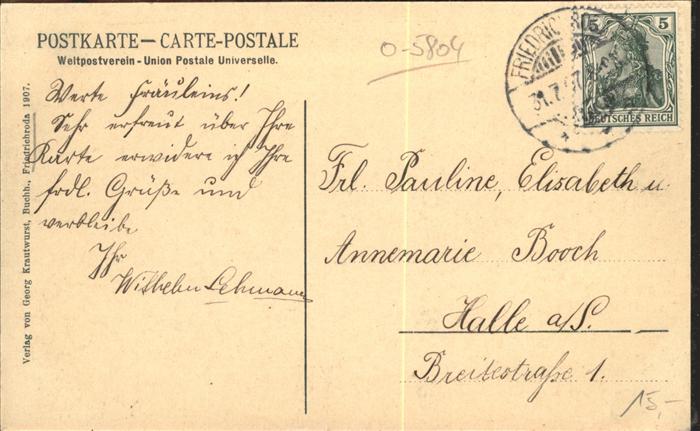 POSTKARTE — CARTE-POSTALE
Weltpostverein - Union Postale Universelle.
O-5804
5
FRIEDRICHRODA
31.7.07
DEUTSCHES REICH
Werte Fräuleins!
Sehr erfreut über Ihre
Karte erwidere ich Ihre
frdl. Grüße und
verbleibe
Ihr
Wilhelm Lehmann
Frl. Pauline, Elisabeth u.
Annemarie Booch
Halle a/S.
Breitestraße 1.
Verlag von Georg Krautwurst, Buchh., Friedrichroda 1907.
15,-